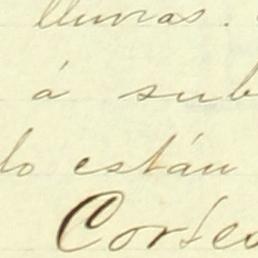 lluvias.
á sub
lo están
Cortes